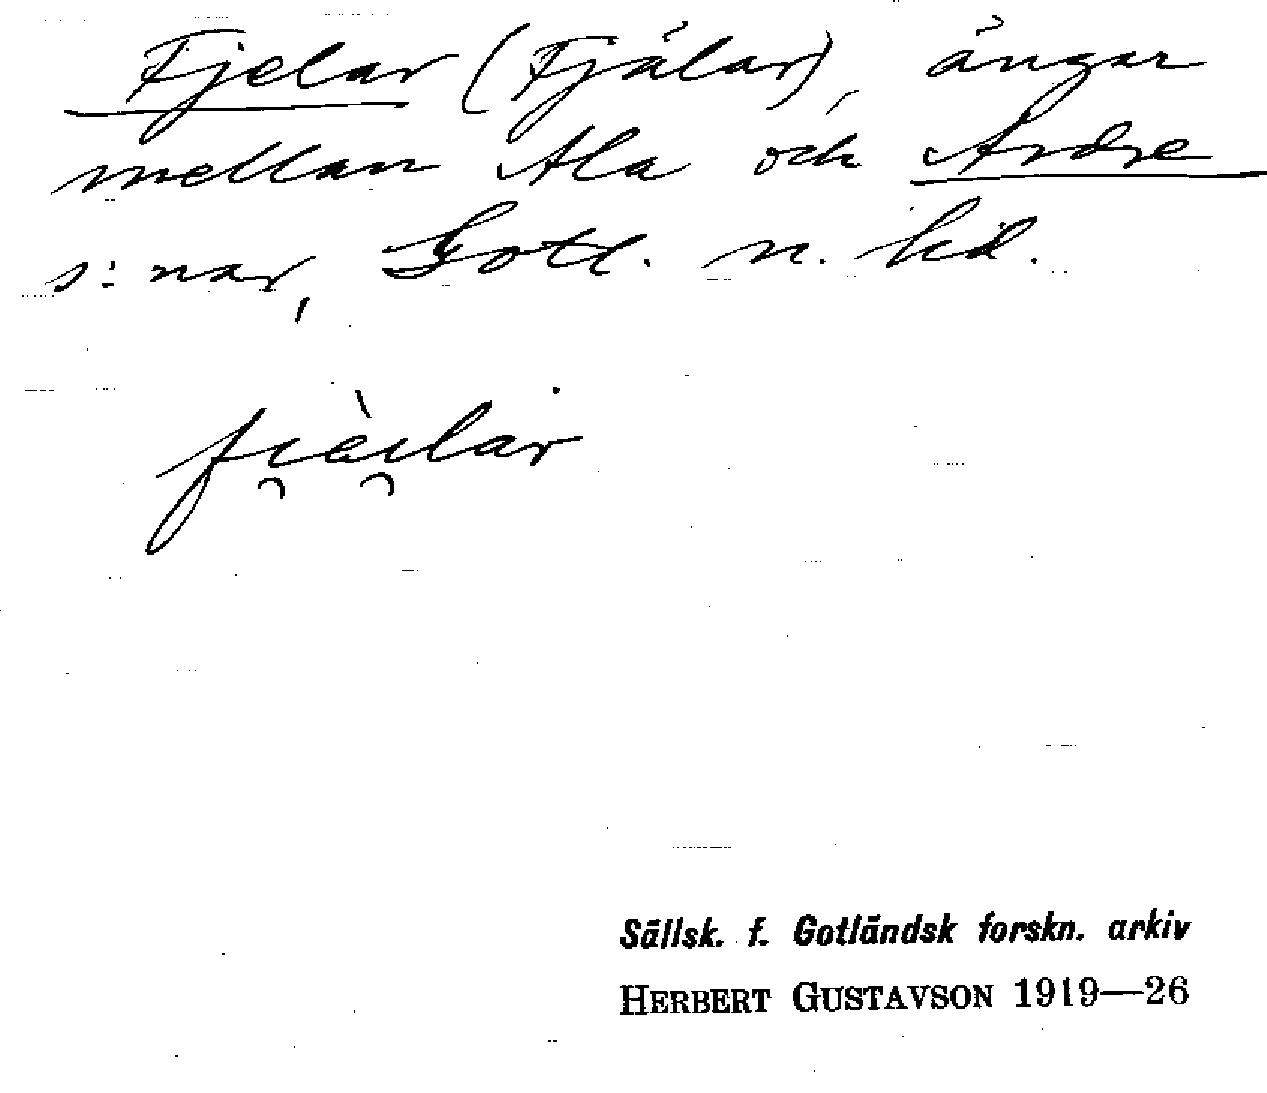 Fjelar (Fjälar), ängar
mellan Ala och Ardre
s:nar, Gotl. n. hd.
fi̯èi̯lar
Sällsk. f. Gotländsk forskn. arkiv
HERBERT GUSTAVSON 1919—26